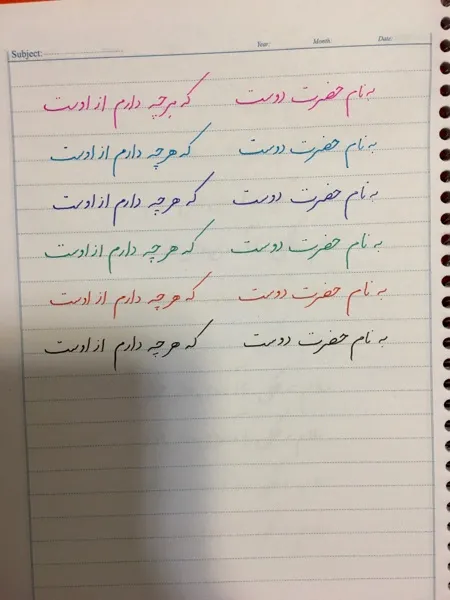 Subject: Year: Month: Date:
به نام حضرت دوست که هرچه دارم از اوست
به نام حضرت دوست که هرچه دارم از اوست
به نام حضرت دوست که هرچه دارم از اوست
به نام حضرت دوست که هرچه دارم از اوست
به نام حضرت دوست که هرچه دارم از اوست
به نام حضرت دوست که هرچه دارم از اوست